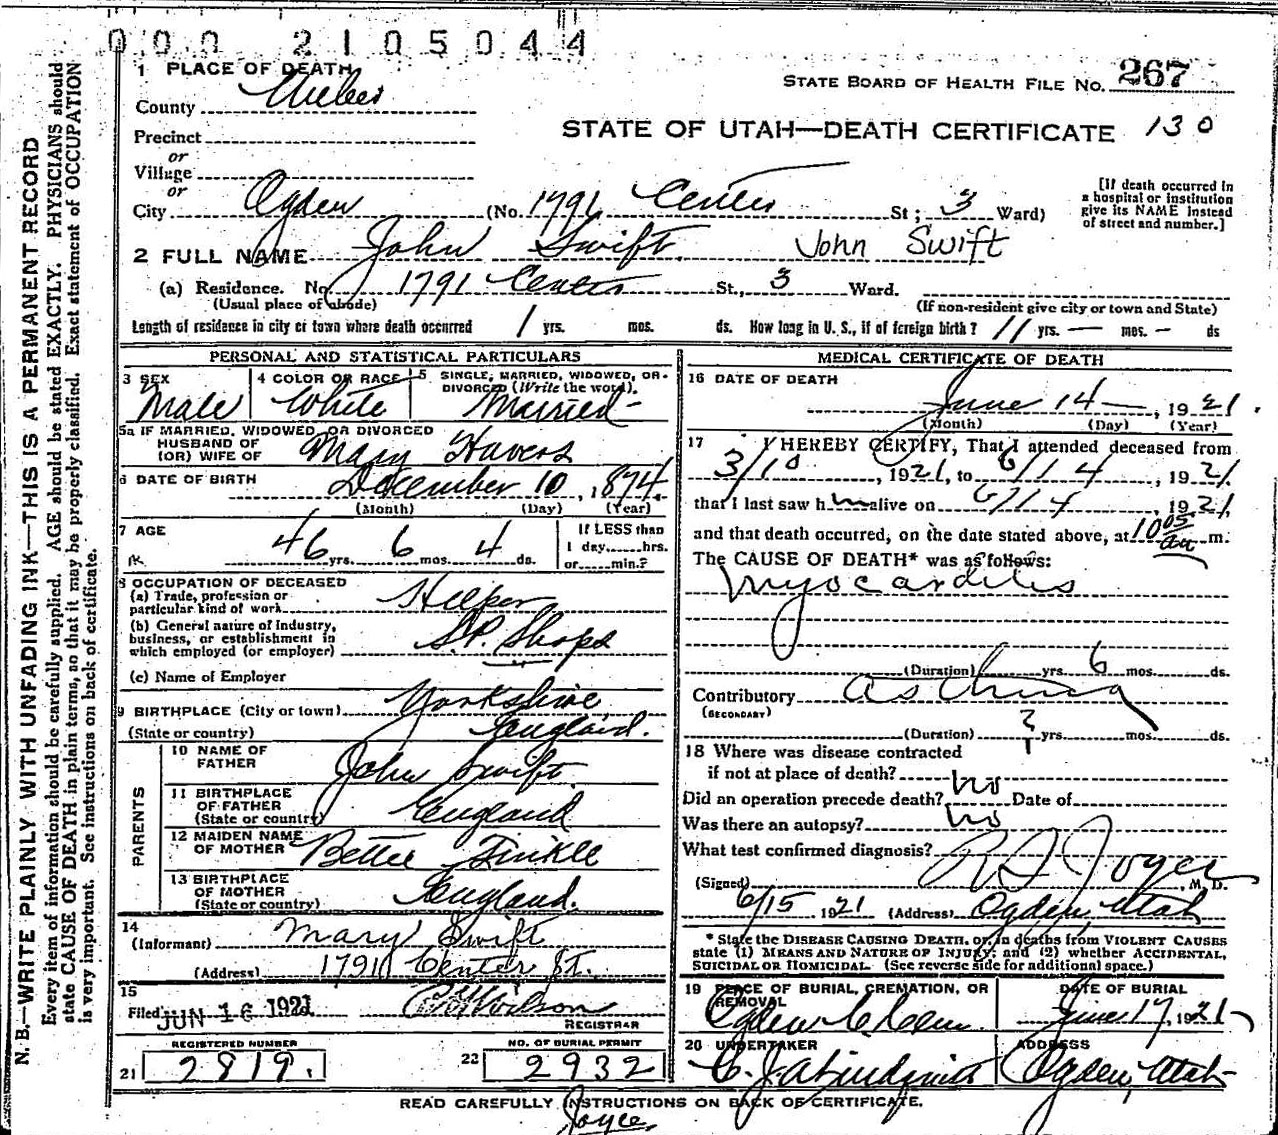 000 2105044
1 PLACE OF DEATH
County Weber
STATE BOARD OF HEALTH FILE No. 267
Precinct
or
STATE OF UTAH—DEATH CERTIFICATE 130
Village
or
City Ogden (No. 1791 Center St; 3 Ward)
[If death occurred in a hospital or institution give its NAME instead of street and number.]
2 FULL NAME John Swift. John Swift
(a) Residence. No. 1791 Center St., 3 Ward.
(Usual place of abode) (If non-resident give city or town and State)
Length of residence in city or town where death occurred 1 yrs. mos. ds. How long in U. S., if of foreign birth? 11 yrs. — mos. — ds
PERSONAL AND STATISTICAL PARTICULARS
3 SEX Male
4 COLOR OR RACE White
5 SINGLE, MARRIED, WIDOWED, OR DIVORCED (Write the word). Married
5a IF MARRIED, WIDOWED, OR DIVORCED
HUSBAND OF
(OR) WIFE OF Mary Havers
6 DATE OF BIRTH December 10, 1874.
(Month) (Day) (Year)
7 AGE 46 yrs. 6 mos. 4 ds.
If LESS than
1 day......hrs.
or......min.?
8 OCCUPATION OF DECEASED
(a) Trade, profession or
particular kind of work Helper
(b) General nature of industry,
business, or establishment in
which employed (or employer) S.P. Shops
(c) Name of Employer
9 BIRTHPLACE (City or town) Yorkshire
(State or country) England.
PARENTS
10 NAME OF
FATHER John Swift
11 BIRTHPLACE
OF FATHER
(State or country) England
12 MAIDEN NAME
OF MOTHER Bettie Tinkle
13 BIRTHPLACE
OF MOTHER
(State or country) England.
14
(Informant) Mary Swift
(Address) 1791 Center St.
15
Filed JUN 16 1921 Wilson
REGISTRAR
REGISTERED NUMBER
21 2819.
NO. OF BURIAL PERMIT
22 2932
MEDICAL CERTIFICATE OF DEATH
16 DATE OF DEATH
June 14 —, 1921.
(Month) (Day) (Year)
17 I HEREBY CERTIFY, That I attended deceased from
3/10, 1921, to 6/14, 1921.
that I last saw him alive on 6/14, 1921,
and that death occurred, on the date stated above, at 10 05 am m.
The CAUSE OF DEATH* was as follows:
Myocarditis
(Duration) yrs. 6 mos. ds.
Contributory asthma
(SECONDARY)
(Duration) ? yrs. mos. ds.
18 Where was disease contracted
if not at place of death?
Did an operation precede death? no Date of
Was there an autopsy? no
What test confirmed diagnosis?
(Signed) Joyce, M. D.
6/15 1921 (Address) Ogden, Utah
* State the DISEASE CAUSING DEATH, or, in deaths from VIOLENT CAUSES
state (1) MEANS AND NATURE OF INJURY; and (2) whether ACCIDENTAL,
SUICIDAL OR HOMICIDAL. (See reverse side for additional space.)
19 PLACE OF BURIAL, CREMATION, OR
REMOVAL
Ogden
DATE OF BURIAL
June 17, 1921
20 UNDERTAKER
ADDRESS
Ogden, Utah
READ CAREFULLY INSTRUCTIONS ON BACK OF CERTIFICATE.
Joyce.
N. B.—WRITE PLAINLY WITH UNFADING INK—THIS IS A PERMANENT RECORD
Every item of information should be carefully supplied. AGE should be stated EXACTLY. PHYSICIANS should
state CAUSE OF DEATH in plain terms, so that it may be properly classified. Exact statement of OCCUPATION
is very important. See instructions on back of certificate.